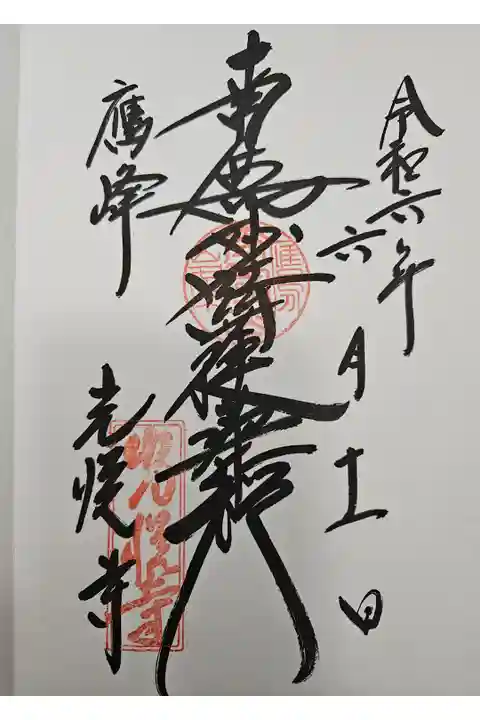 令和六年
六月十一日
南無妙法蓮華経
鷹峰
光悦寺